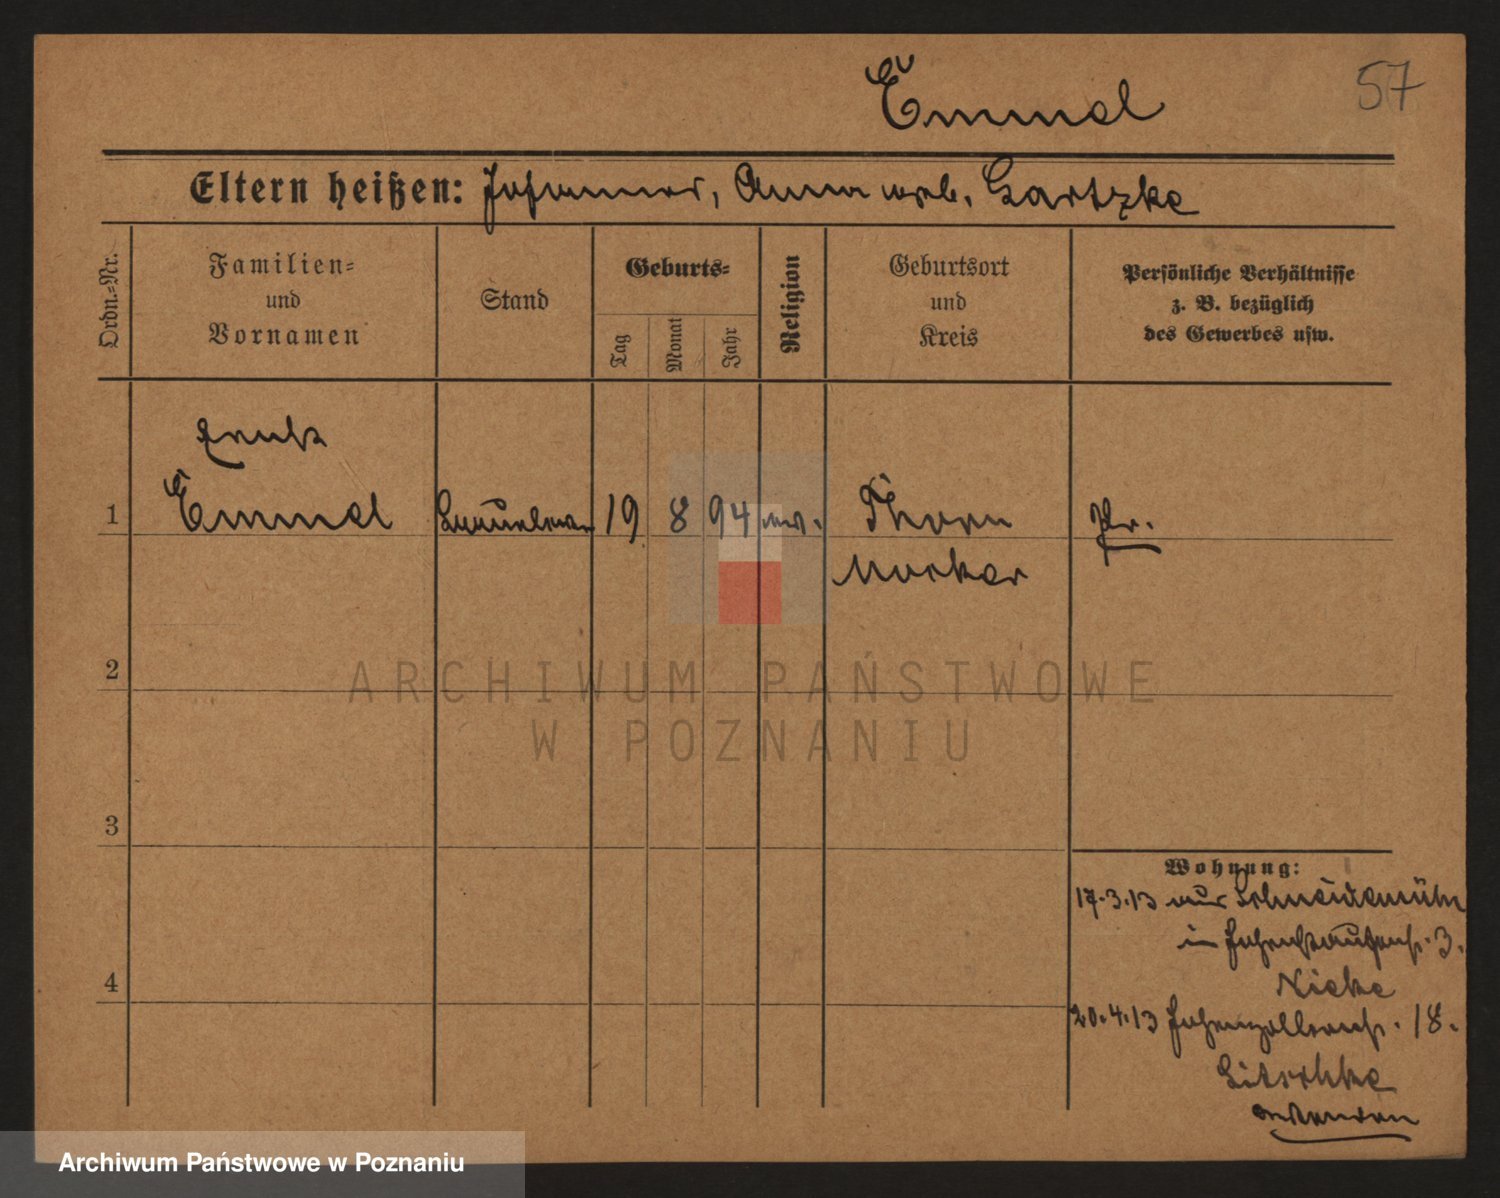 Emmel
57
Eltern heißen: Johannes, Anna geb. Gartzke
Ordn.-Nr.
Familien- und Vornamen
Stand
Geburts-
Tag
Monat
Jahr
Religion
Geburtsort und Kreis
Persönliche Verhältnisse
z. B. bezüglich
des Gewerbes usw.
1
Emmel
19
8
94
Thorn
Mocker
Pr.
2
3
4
Wohnung:
17.3.13 aus Schneidemühl
in Hohenstaufenstr. 3.
20.4.13 Hohenzollernstr. 18.
ARCHIWUM PAŃSTWOWE
W POZNANIU
Archiwum Państwowe w Poznaniu